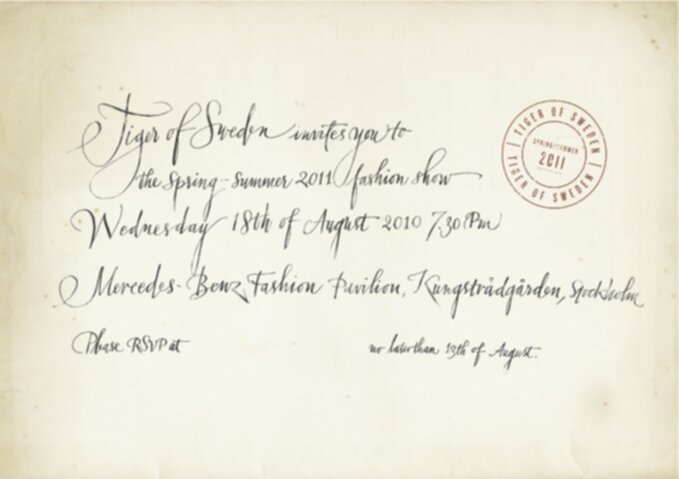 Tiger of Sweden invites you to
the Spring-Summer 2011 fashion show
Wednesday 18th of August 2010 7.30 PM
Mercedes-Benz Fashion Pavilion, Kungsträdgården, Stockholm
Please RSVP at no later than 13th of August.
TIGER OF SWEDEN
SPRING/SUMMER
2011
TIGER OF SWEDEN